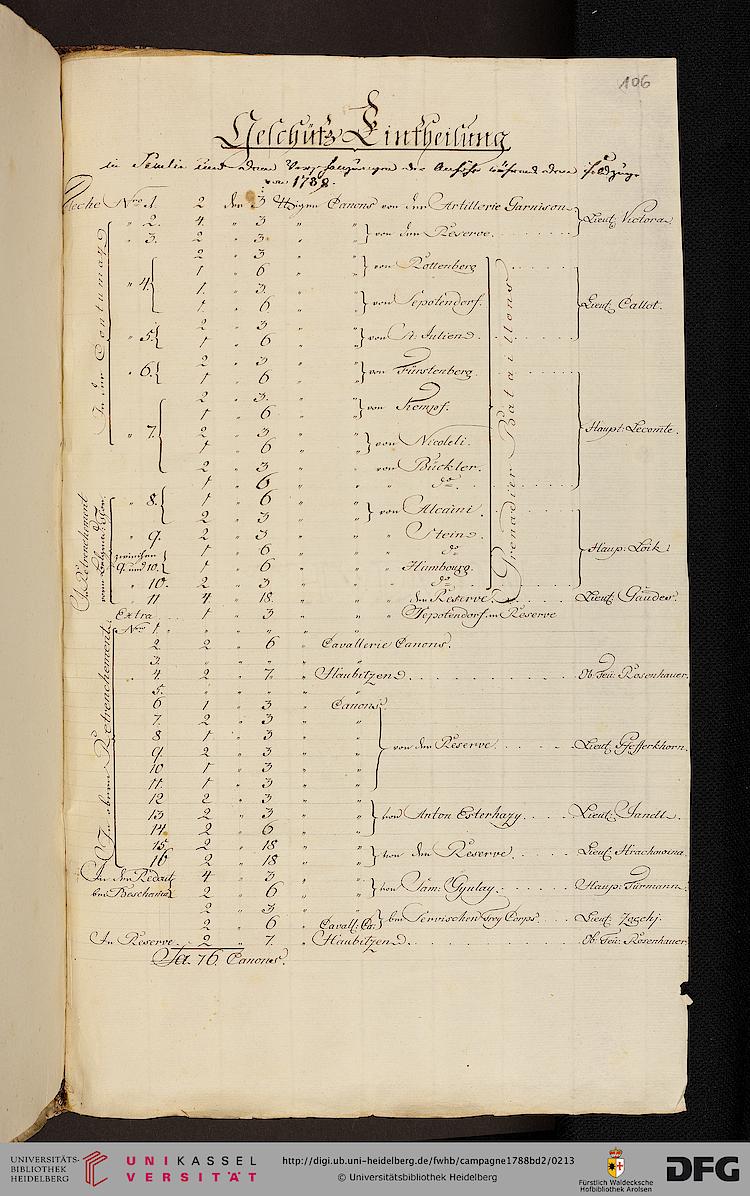 106
Geschütz Eintheilung
in Semlin und denen Verschanzungen der während denen Feldzuge
von 1788.
Fleche Nro. 1. 2 der 3 tt͡igen Canons von der Artillerie Garnison Lieut. Victora.
" 2. 4. " 3 " "
" 3. 2 " 3. " " } von der Reserve.
2 " 3 " "
1 " 6 " " } von Rottenberg
" 4. 1. " 3. " "
1. " 6. " " } von Sepotendorf. Lieut. Callot.
2 " 3 " "
" 5. 1 " 6 " " } von St. Julien.
2 " 3 " "
" 6. 1 " 6 " " } von Fürstenberg.
2 " 3. " "
1 " 6 " " } von Kempf.
" 7. 2 " 3 " " Haupt: Lecomte.
1 " 6 " " } von Nicoleti.
2 " 3 " " von Bückler.
1 " 6 " " do.
" 8. 1 " 6 " "
2 " 3 " " } von Alcaini.
" 9. 2 " 3 " " " Stein
zwischen 9. und 10. 1 " 6 " " " do Haup: Loik
1 " 6 " " " Humbourg.
" 10. 2 " 3 " " " do
" 11 4 " 18. " " " der Reserve. Lieut: Gaudes.
Extra 1 " 3 " " " Sepotendorf in Reserve
In der Contumaz
Grenadier Bataillons
Im Retrenchement
Nro 1. " " " "
2. 2 " 6 " Cavallerie Canons.
3. " " " "
4 2 " 7. " Haubitzen. Ob: Feu: Rosenhauer.
5. " " " "
6 1 " 3 " Canons
7. 2 " 3 " "
8 1 " 3 " "
9 2 " 3 " " von der Reserve. Lieut. Pfefferkhorn.
10 1 " 3 " "
11. 1 " 3 " "
12 2 " 3 " "
13 2 " 3 " " } von Anton Esterhazy. Lieut:
14. 2 " 6 " "
15. 2 " 18 " " } von der Reserve. Lieut. Hrachowina.
16 2 " 18 " "
Im obern Retrenchement
In der Redout 4 " 3 " "
bei Beschania 2 " 6 " " } von Sam: Gyulay. Haup: Turmann.
2 " 3 " "
2 " 6 " Cavall: Ca: } bei Servischen Frey Corps. Lieut. Zagchj.
In Reserve. 2 " 7. " Haubitzen. Ob: Feu: Rosenhauer
Sa. 76. Canons.
UNIVERSITÄTS-
BIBLIOTHEK
HEIDELBERG
UNIKASSEL
VERSITÄT
http://digi.ub.uni-heidelberg.de/fwhb/campagne1788bd2/0213
© Universitätsbibliothek Heidelberg
Fürstlich Waldecksche
Hofbibliothek Arolsen
DFG